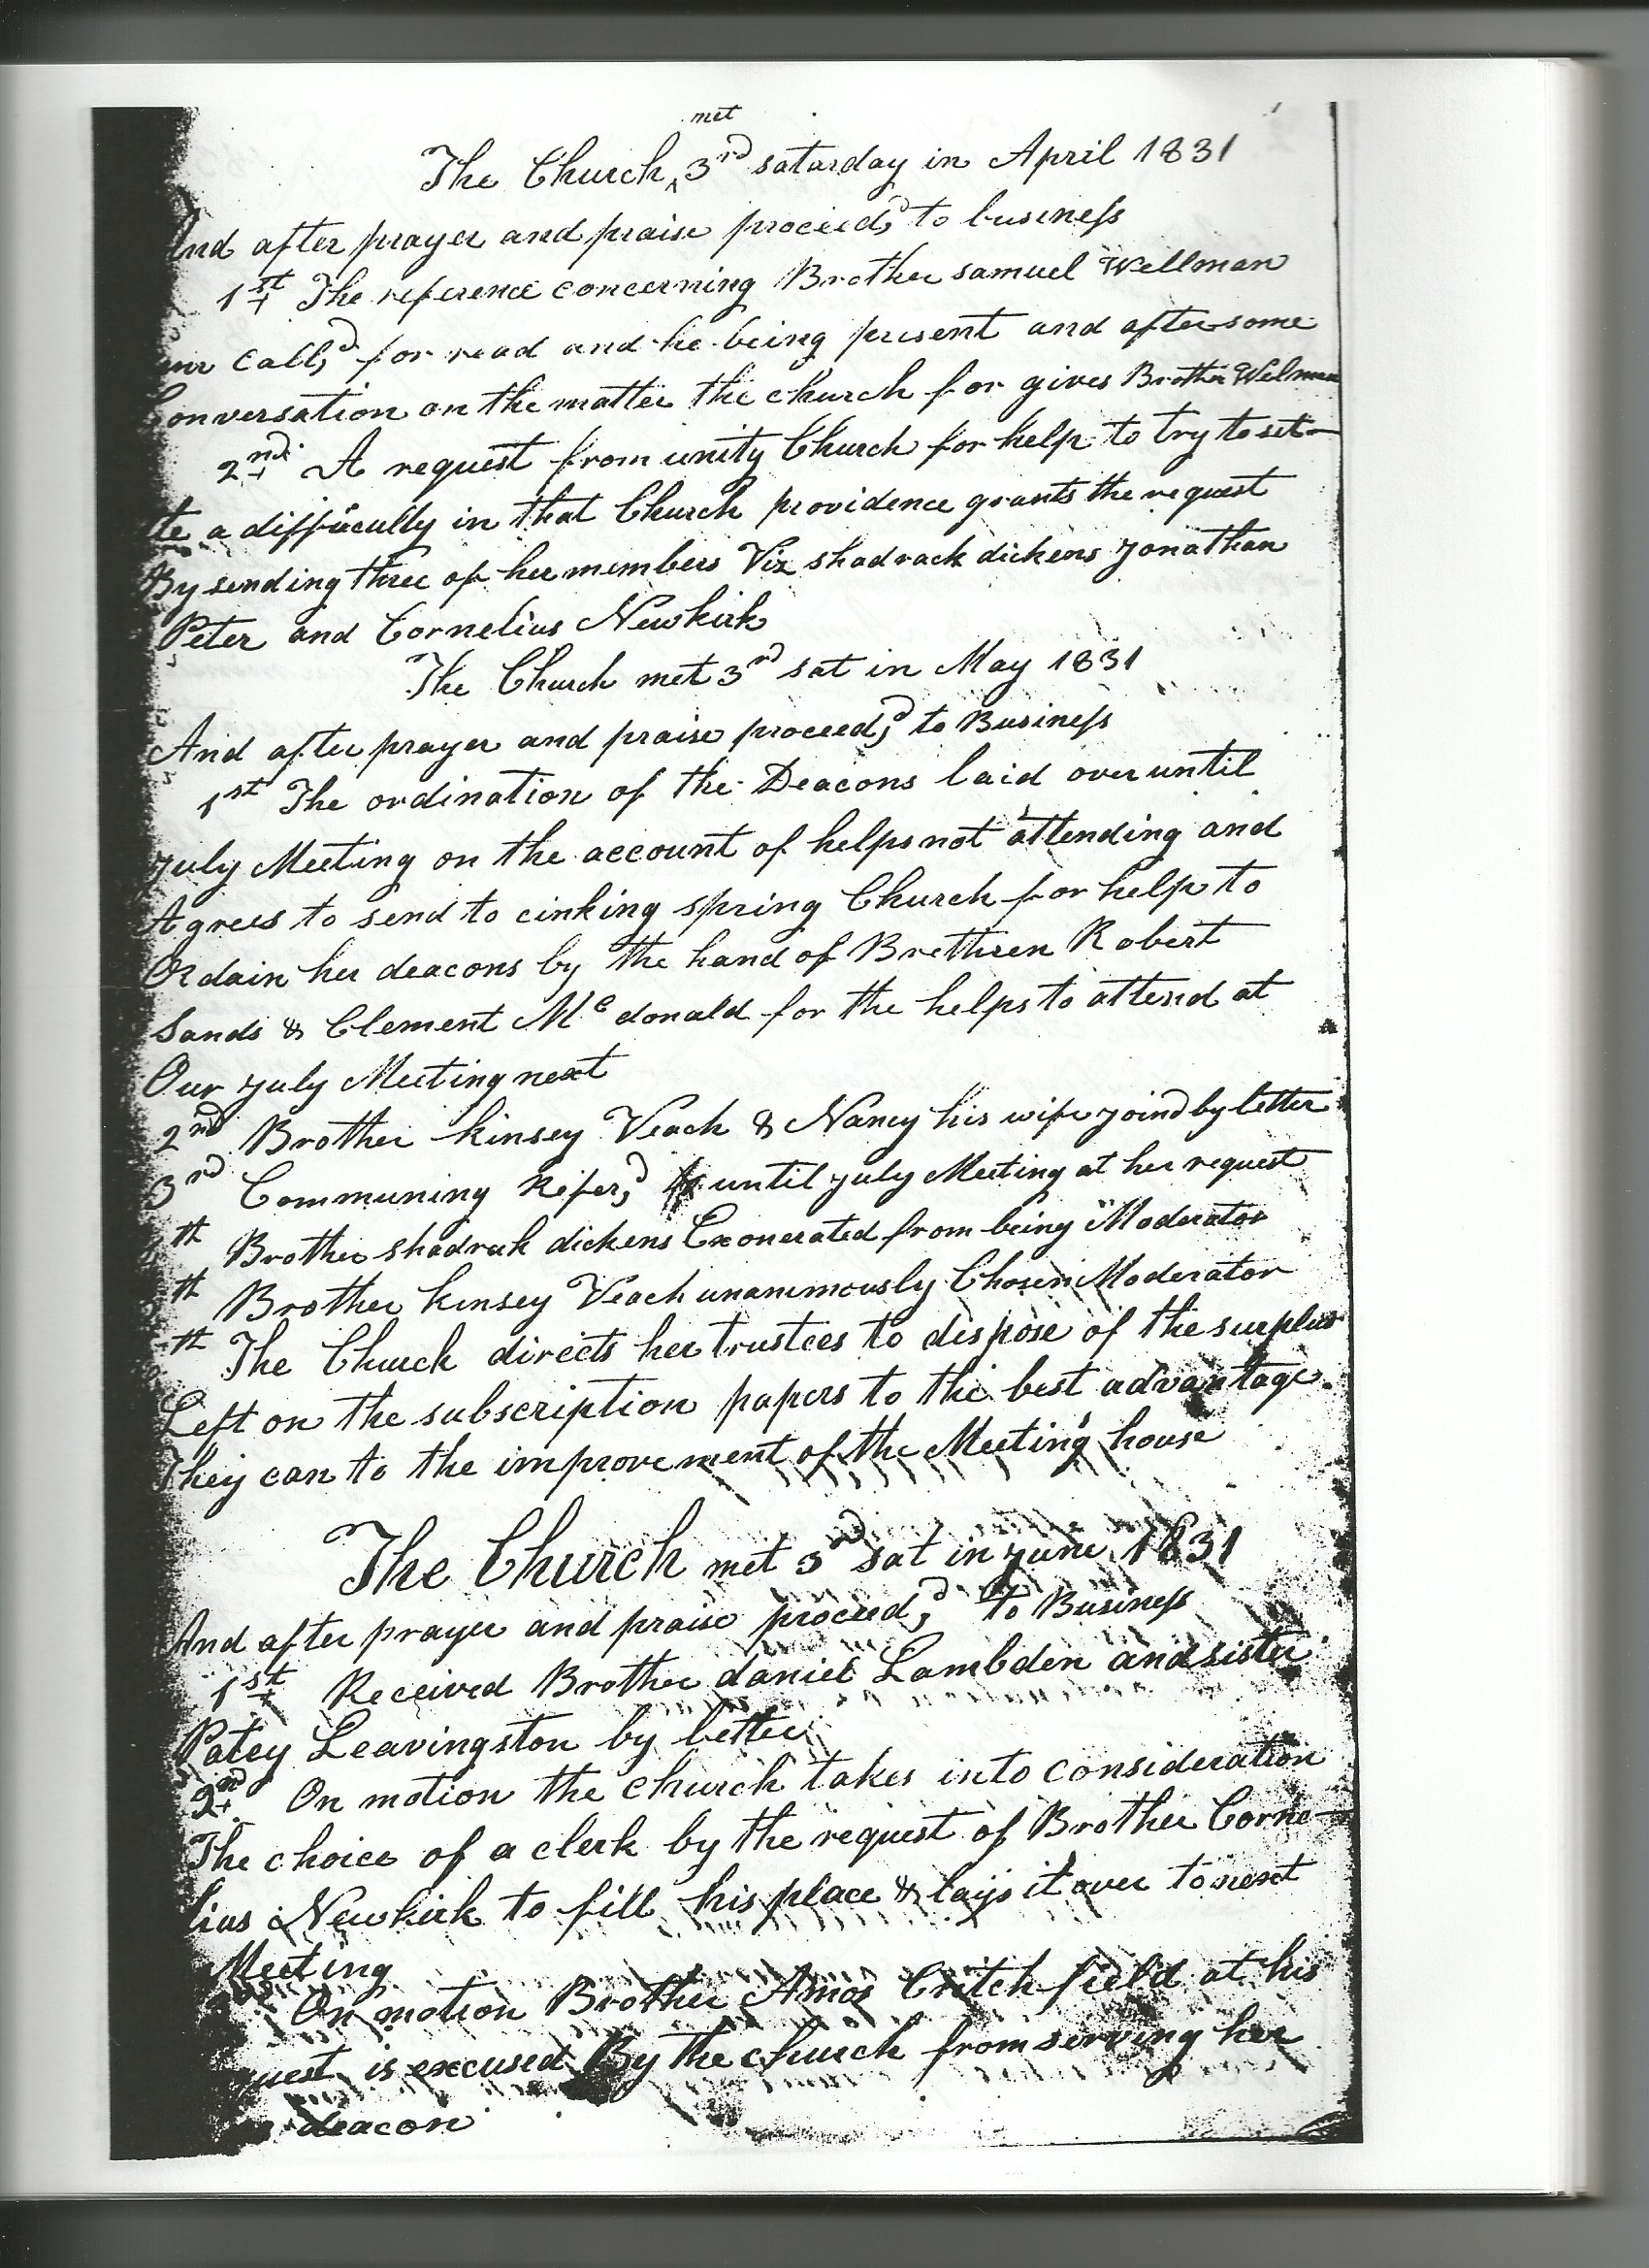 met
The Church ^ 3rd saturday in April 1831
And after prayer and praise proceed,d to business
1st The reference concerning Brother samuel Wellman
call,d for read and he being present and after some
Conversation on the matter the church for gives Brother Welman
2nd A request from unity Church for help to try to set-
tle a diffuculty in that Church providence grants the request
By sending three of her members Viz shadrack dickens Jonathan
Peter and Cornelius Newkirk
The Church met 3rd sat in May 1831
And after prayer and praise proceed,d to Business
1st The ordination of the Deacons laid over until
July Meeting on the account of helps not attending and
Agrees to send to cinking spring Church for help to
Ordain her deacons by the hand of Brethren Robert
Sands & Clement Mc donald for the helps to attend at
Our July Meeting next
2nd Brother Kinsey Veach & Nancy his wife joind by letter
3rd Communing Refer,d until July Meeting at her request
th Brother shadrack dickens Exonerated from being Moderator
th Brother Kinsey Veach unanimously Chosen Moderator
th The Church directs her trustees to dispose of the surplus
Left on the subscription papers to the best advantage
They can to the improvement of the Meeting house
The Church met 3rd sat in June 1831
And after prayer and praise proceed,d to Business
1st Received Brother daniel Lambden and sister
Patcy Leavingston by letter
2nd On motion the church takes into consideration
The choice of a clerk by the request of Brother Corne-
lius Newkirk to fill his place & lays it over to next
Meeting
On motion Brother Amos Critchfield at his
quest is excused By the church from serving her
deacon